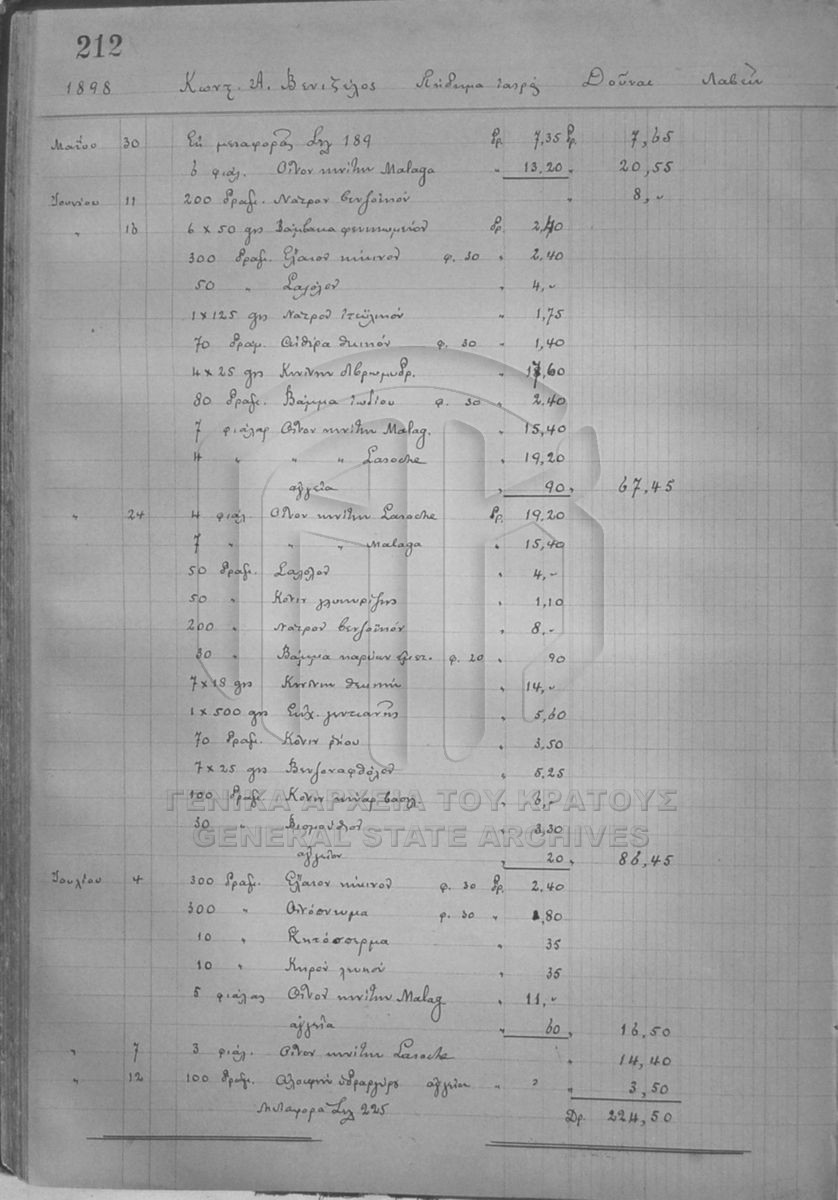 212
1898 Κωνστ. Α. Βενιζέλος ἰατρός Δοῦναι Λαβεῖν
Μαΐου 30 Ἐκ μεταφορᾶς Σελ 189 Δρ. 7,35 Δρ. 7,65
6 φιάλ. Οἶνον κινίτην Malaga " 13,20 " 20,55
Ἰουνίου 11 200 δραμ. Νάτρον βενζοϊκόν " 8,"
" 16 6 x 50 grs Βάμβακα φενικωμένον Δρ. 2,40
300 δραμ. Ἔλαιον κίκινον φ. 30 " 2,40
50 " Σαλόλον " 4,"
1 x 125 grs Νάτρον " 1,75
70 δραμ. Αἰθέρα θειικόν φ. 30 " 1,40
4 x 25 grs Κινίνην διβρωμυδρ. " 17,60
80 δραμ. Βάμμα ἰωδίου φ. 30 " 2,40
7 φιάλας Οἶνον κινίτην Malag. " 15,40
4 " " " Laroche " 19,20
ἀγγεῖα " 90 " 67,45
" 24 4 φιάλ. Οἶνον κινίτην Laroche Δρ. 19,20
7 " " " Malaga " 15,40
50 δραμ. Σαλόλον " 4,"
50 " Κόνιν γλυκυρίζης " 1,10
200 " Νάτρον βενζοϊκόν " 8,"
30 " Βάμμα καρύων ἐμετ. φ. 20 " 90
7 x 18 grs Κινίνην θειικήν " 14,"
1 x 500 grs Ἐκχ. γεντιανῆς " 5,60
70 δραμ. Κόνιν ῥήου " 3,50
7 x 25 grs Βενζοναφθόλον " 5,25
100 δραμ. Κόνιν κιναρ. βασιλ " 6,"
30 " Βισμούθιον " 3,30
ἀγγεῖον " 20 " 86,45
Ἰουλίου 4 300 δραμ. Ἔλαιον κίκινον φ. 30 Δρ. 2,40
300 " Οἰνόπνευμα φ. 30 " 1,80
10 " Κητόσπερμα " 35
10 " Κηρόν λευκόν " 35
5 φιάλας Οἶνον κινίτην Malag " 11,"
ἀγγεῖα " 60 " 16,50
" 7 3 φιάλ. Οἶνον κινίτην Laroche " 14,40
" 12 100 δραμ. Ἀλοιφήν ὑδραργύρου ἀγγεῖον " " " 3,50
Μεταφορά Σελ 225 Δρ. 224,50
ΓΕΝΙΚΑ ΑΡΧΕΙΑ ΤΟΥ ΚΡΑΤΟΥΣ
GENERAL STATE ARCHIVES